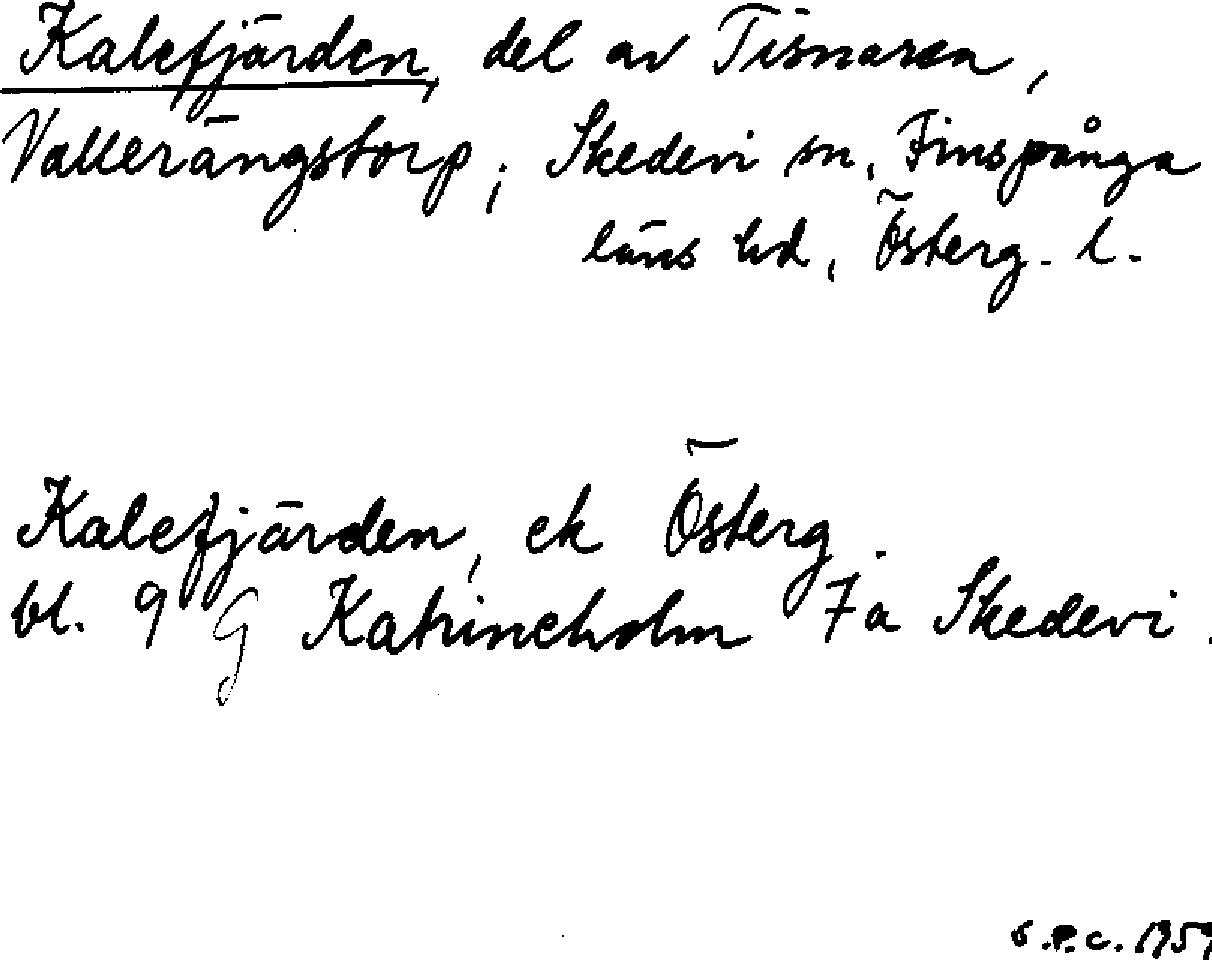 Kalefjärden, del av Tisnaren,
Vallerängstorp, Skedevi sn, Finspånga
läns hd, Österg. l.
Kalefjärden, ek Österg.
bl. 9 G Katrineholm 7a Skedevi.
G.P.C. 1959